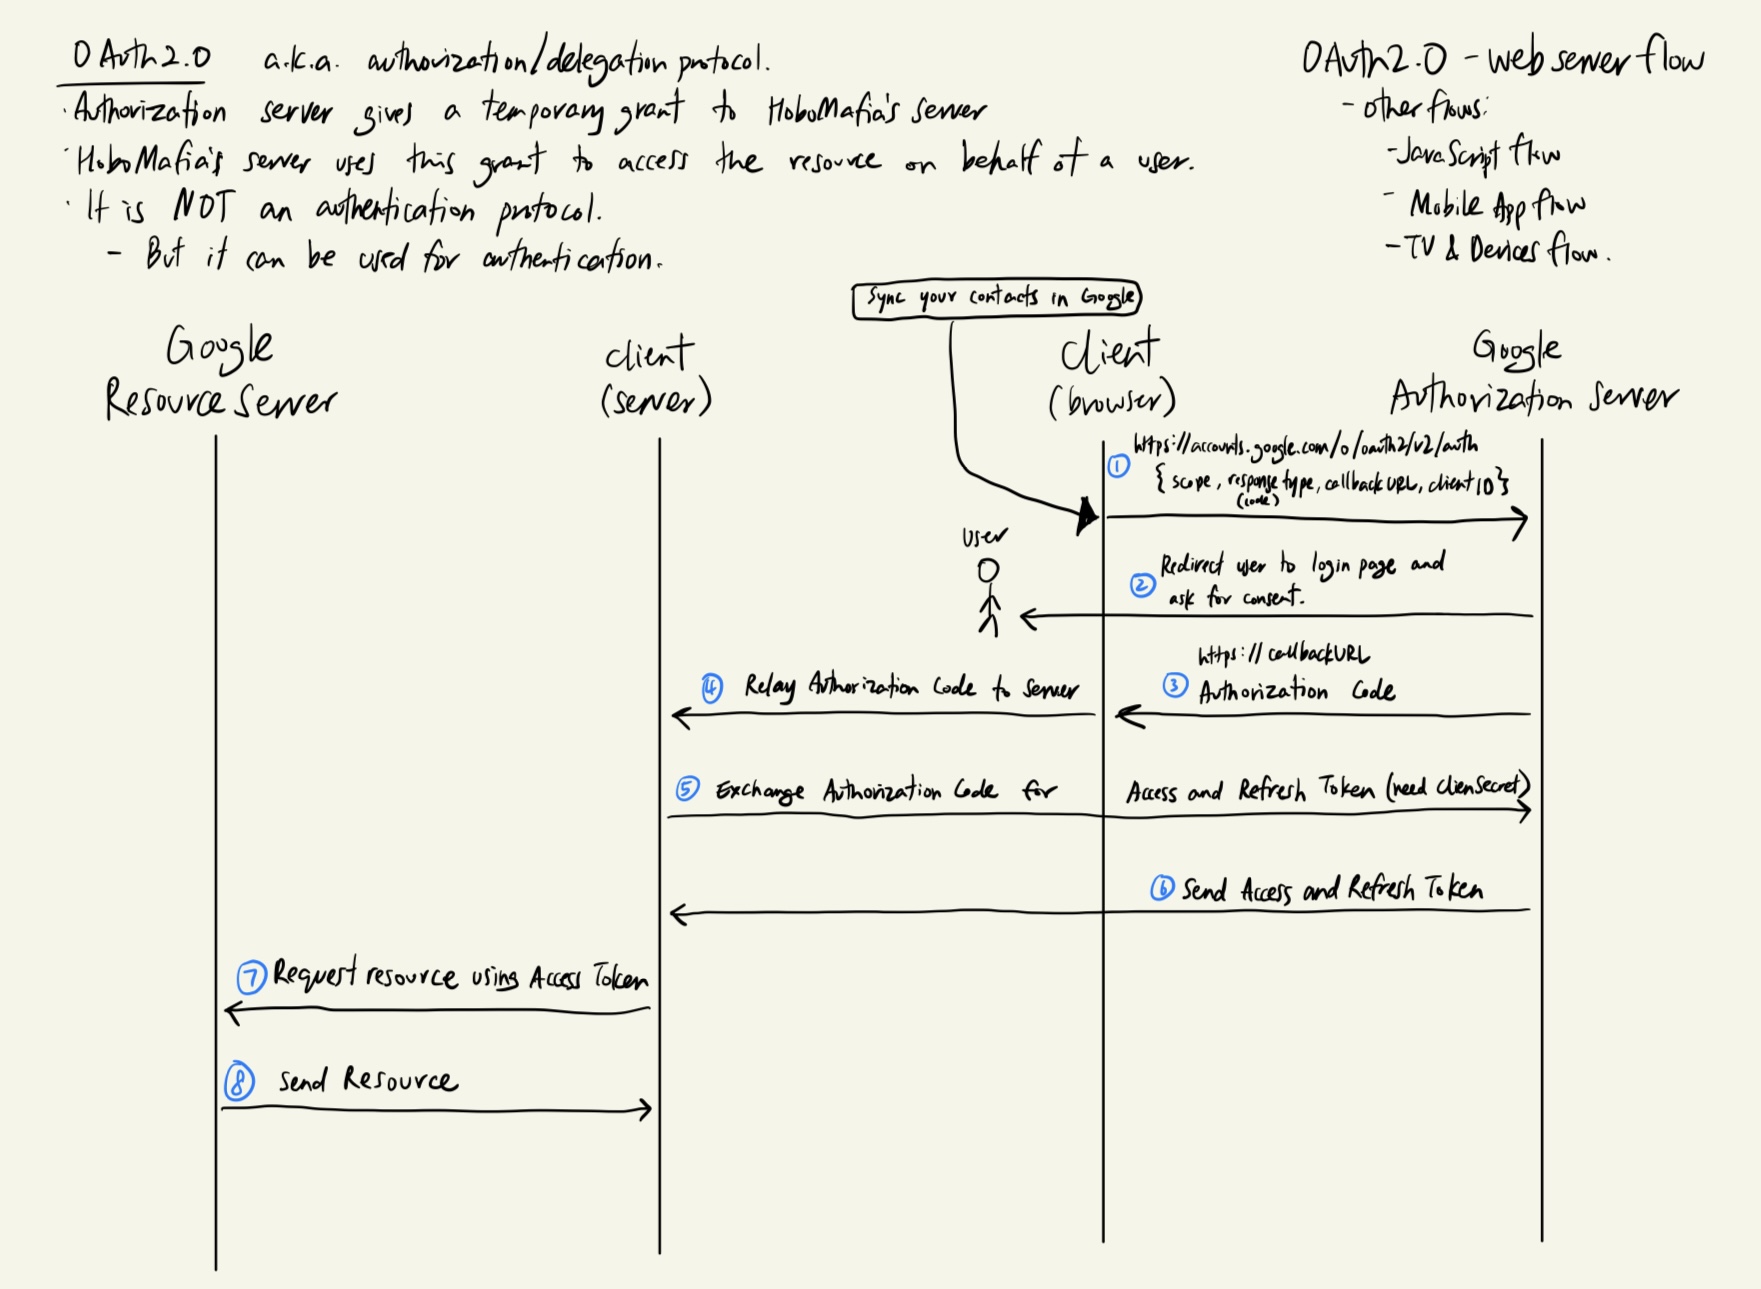 OAuth2.0 a.k.a. authorization/delegation protocol.
· Authorization server gives a temporary grant to HoboMafia's server
· HoboMafia's server uses this grant to access the resource on behalf of a user.
· It is NOT an authentication protocol.
- But it can be used for authentication.
OAuth2.0 - web server flow
- other flows:
- JavaScript flow
- Mobile App flow
- TV & Devices flow.
Sync your contacts in Google
Google
Resource Server
client
(server)
Client
(browser)
Google
Authorization Server
https://accounts.google.com/o/oauth2/v2/auth
① { scope, response type, callback URL, client ID }
(code)
user
② Redirect user to login page and
ask for consent.
https://callbackURL
③ Authorization Code
④ Relay Authorization Code to Server
⑤ Exchange Authorization Code for Access and Refresh Token (need clienSecret)
⑥ Send Access and Refresh Token
⑦ Request resource using Access Token
⑧ Send Resource